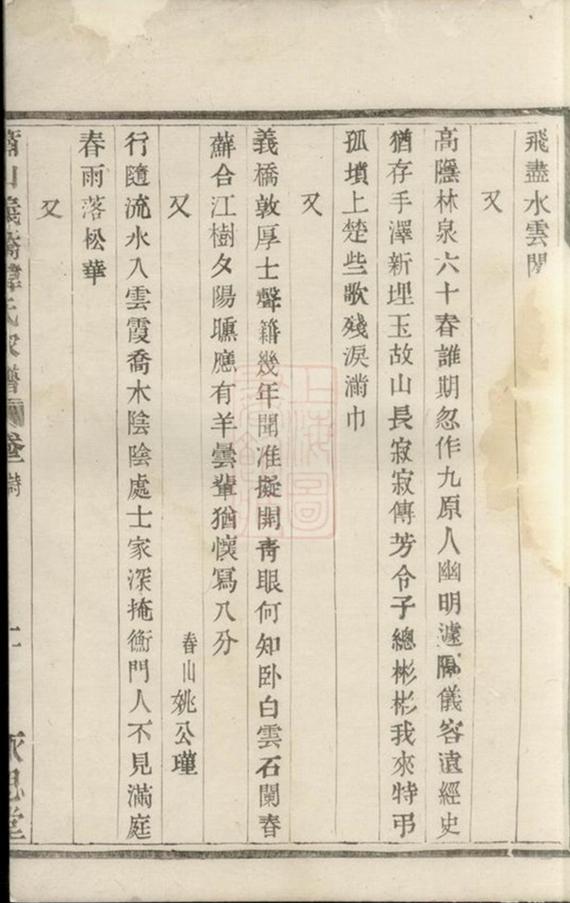 飛盡水雲閒
又
高隱林泉六十春誰期忽作九原人幽明遽隔儀容遠經史
猶存手澤新埋玉故山長寂寂傳芳令子總彬彬我來特弔
孤墳上楚些歌殘淚滿巾
又
義橋敦厚士聲籍幾年聞准擬開靑眼何知卧白雲石闌春
蘚合江樹夕陽曛應有羊曇輩猶懷寫八分
又
春山姚公瑾
行隨流水入雲霞喬木陰陰處士家深掩衡門人不見滿庭
春雨落松華
又
蕭山義橋韓氏家譜
卷二
詩
十一
永思堂
上海圖